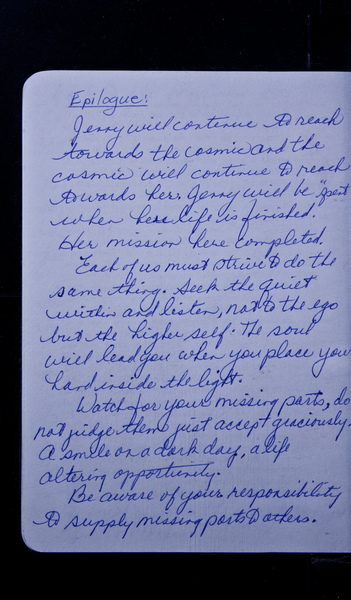 Epilogue:
Jerry will continue to reach
towards the cosmic and the
cosmic will continue to reach
towards her. Jerry will be "spent"
when her life is finished.
Her mission here completed.
Each of us must strive to do the
same thing. Seek the quiet
within and listen, not to the ego
but the higher self. The soul
will lead you when you place your
hand inside the light.
Watch for your missing parts, do
not judge them just accept graciously.
A smile on a dark day, a life
altering opportunity.
Be aware of your responsibility
to supply missing parts to others.